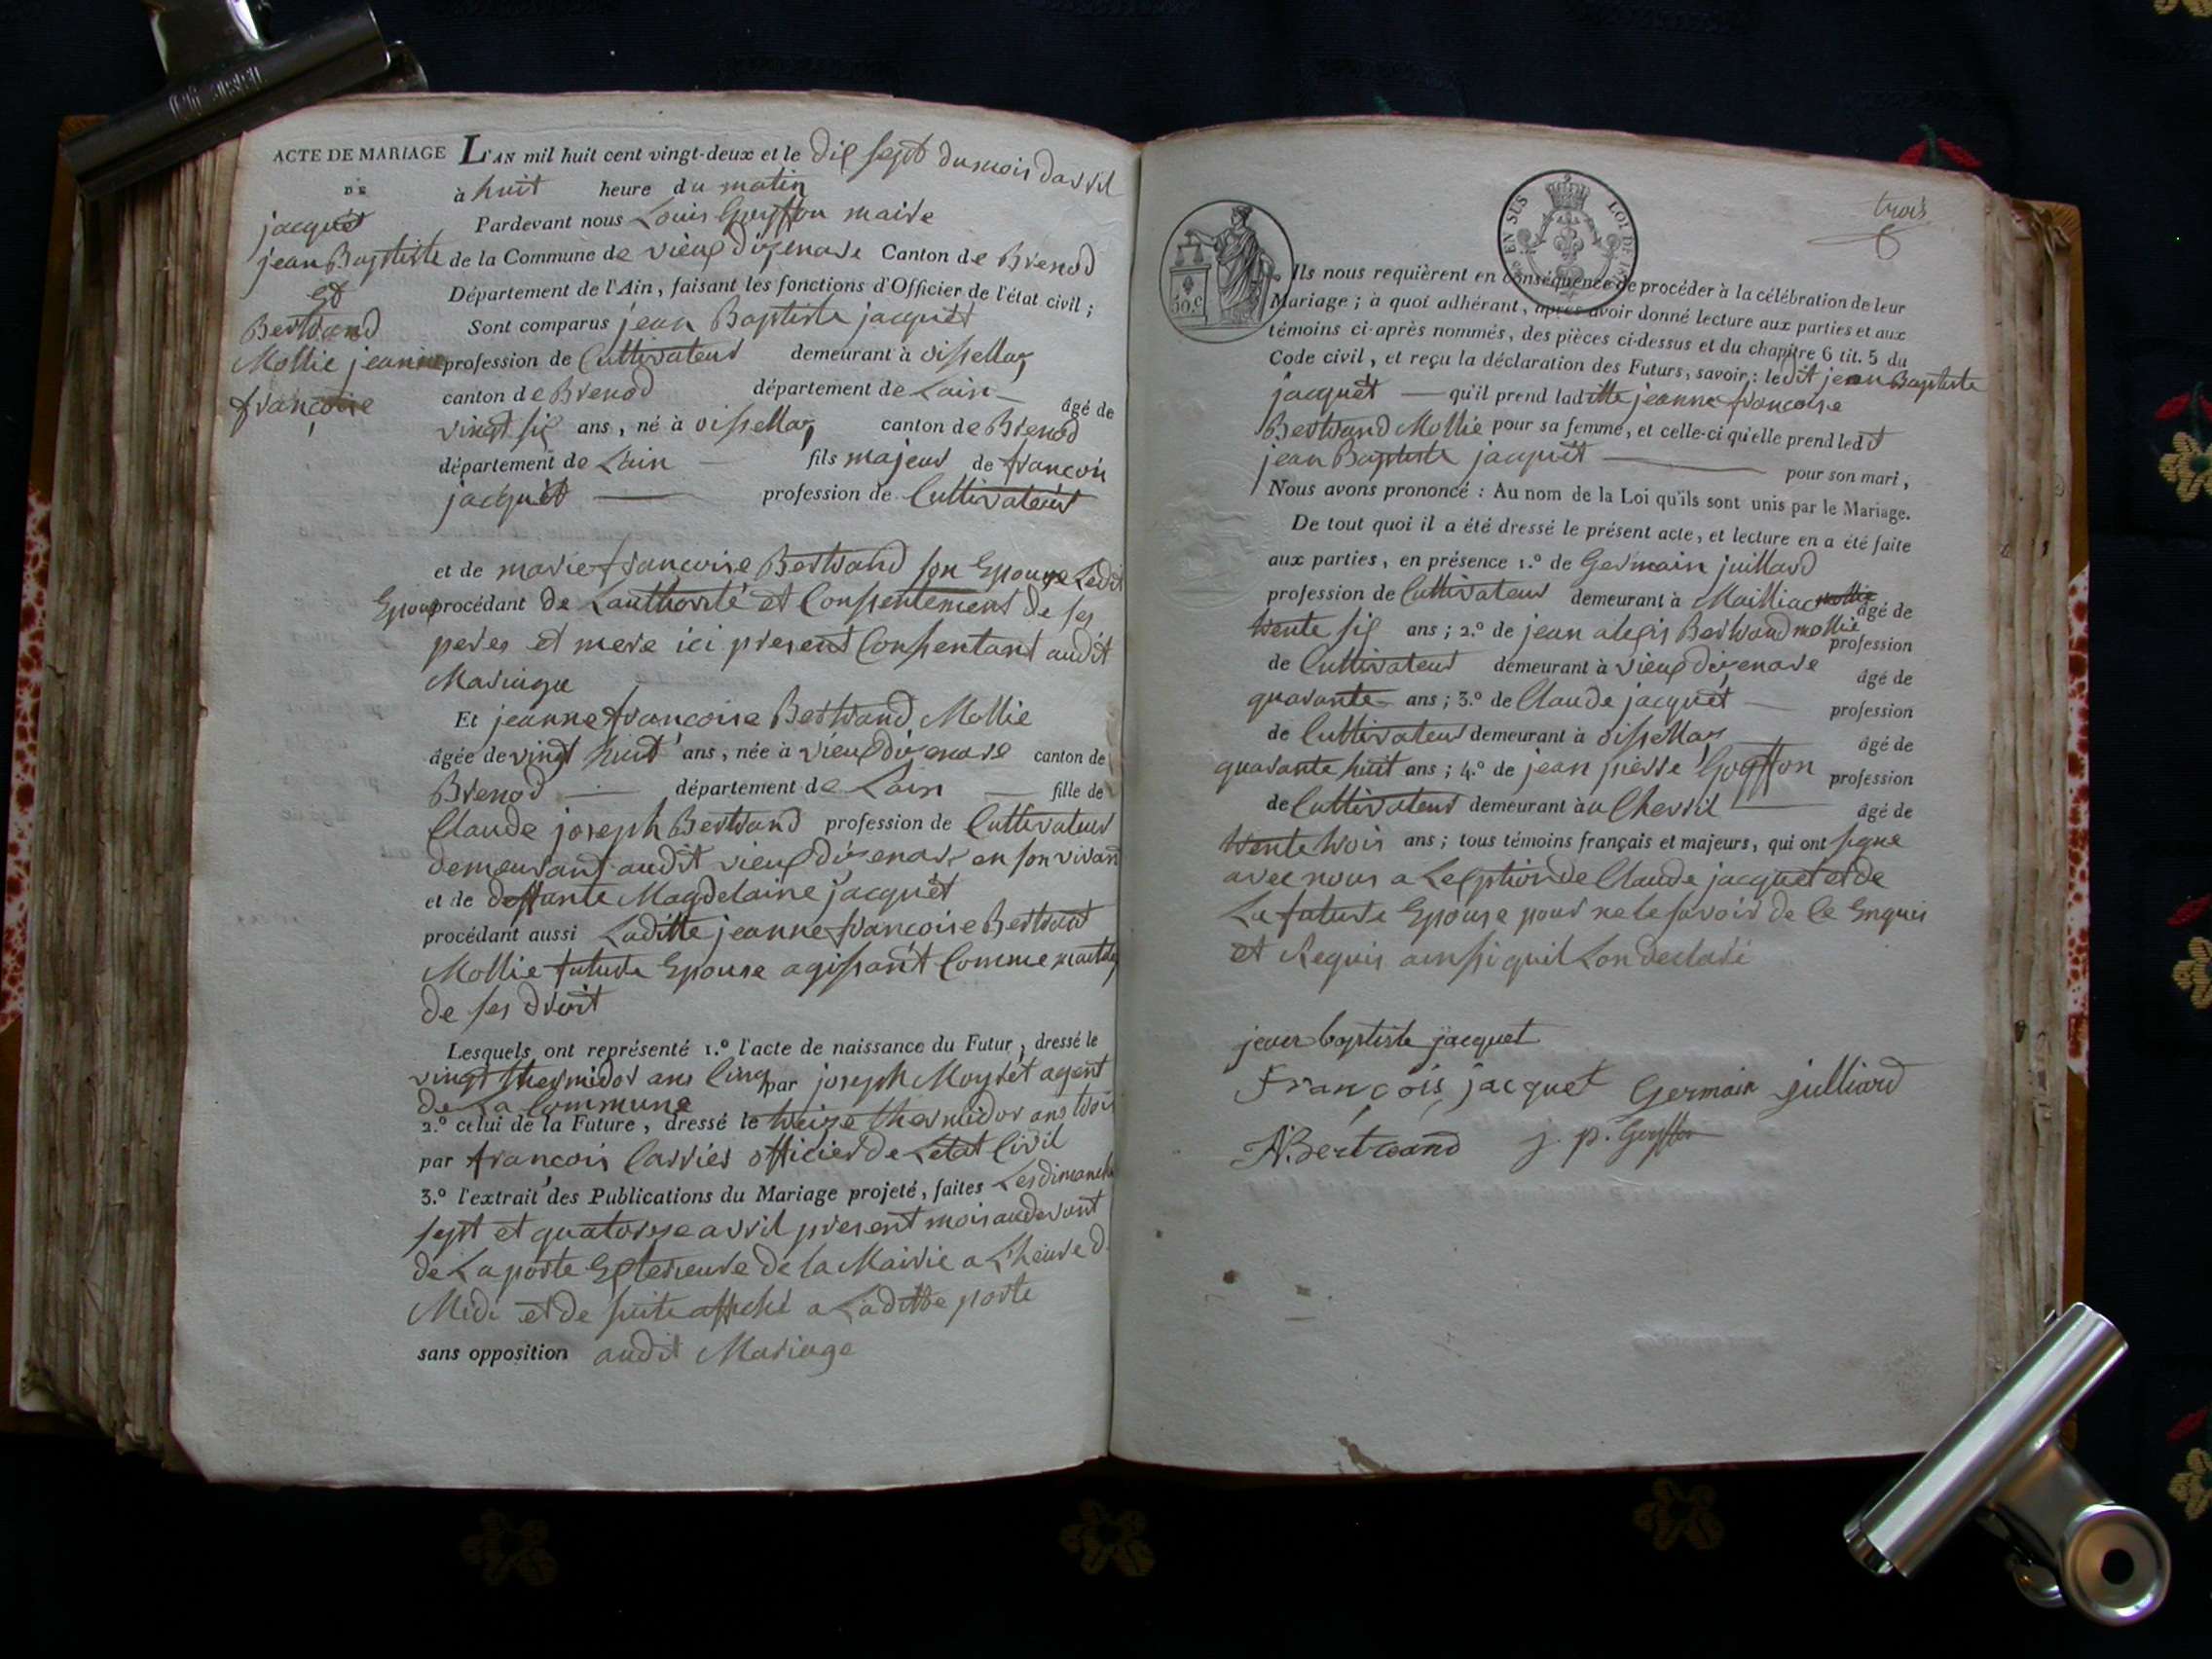 ACTE DE MARIAGE
DE
jacquet
jean Baptiste
Et
Bertrand
Mollie jeanne
françoise
L'AN mil huit cent vingt-deux et le dix sept du mois davril
à huit heure du matin
Pardevant nous Louis Goyffon maire
de la Commune de vieux dizenave Canton de Brenod
Département de l'Ain, faisant les fonctions d'Officier de l'état civil ;
Sont comparus jean Baptiste jacquet
profession de Cultivateur demeurant à oissellaz
canton de Brenod département de Lain âgé de
vingt six ans, né à oissellaz canton de Brenod
département de Lain fils majeur de francoi
jacquet profession de Cultivateur
et de marie francoise Bertrand son Epouse Ledit
Epoux procédant de Lauthorité et Consentement de ses
peres et mere ici present Consentant audit
Mariage
Et jeanne francoise Bertrand Mollie
âgée de vingt huit ans, née à vieux dizenave canton de
Brenod département de Lain fille de
Claude joseph Bertrand profession de Cultivateur
demeurant audit vieux dizenave en son vivant
et de deffunte Magdelaine jacquet
procédant aussi Laditte jeanne francoise Bertrant
Mollie future Epouse agissant Comme
de ses droit
Lesquels ont représenté 1.º l'acte de naissance du Futur, dressé le
vingt thermidor ans Cinq par joseph Moyret agent
de La Commune
2.º celui de la Future, dressé le treize thermidor ans trois
par françois Carrier officier de Letat Civil
3.º l'extrait des Publications du Mariage projeté, faites Les dimanche
sept et quatorze avril present mois audevant
de La porte Exterieure de la Mairie a Lheure d
Midi et de suite affiché a Laditte porte
sans opposition audit Mariage
trois
EN SUS LOI DE
50.c
Ils nous requièrent en conséquence de procéder à la célébration de leur
Mariage ; à quoi adhérant, après avoir donné lecture aux parties et aux
témoins ci-après nommés, des pièces ci-dessus et du chapitre 6 tit. 5 du
Code civil, et reçu la déclaration des Futurs, savoir : ledit jean Baptiste
jacquet qu'il prend laditte jeanne francoise
Bertrand Mollie pour sa femme, et celle-ci qu'elle prend ledit
jean Baptiste jacquet pour son mari,
Nous avons prononcé : Au nom de la Loi qu'ils sont unis par le Mariage.
De tout quoi il a été dressé le présent acte, et lecture en a été faite
aux parties, en présence 1.º de Germain juillard
profession de Cultivateur demeurant à Mailliac âgé de
trente six ans ; 2.º de jean alexis Bertrand mollie profession
de Cultivateur demeurant à vieux dizenave âgé de
quarante ans ; 3.º de Claude jacquet profession
de Cultivateur demeurant à oissellaz âgé de
quarante huit ans ; 4.º de jean pierre Goyffon profession
de Cultivateur demeurant à u Chevril âgé de
trente trois ans ; tous témoins français et majeurs, qui ont signe
avec nous a Lexption de Claude jacquet et de
La future Epouse pour ne le savoir de Ce Enquis
et Requis ainsi quil Lon declaré
jean baptiste jacquet
François jacquet Germain julliard
A. Bertrand j. p. Goyffon